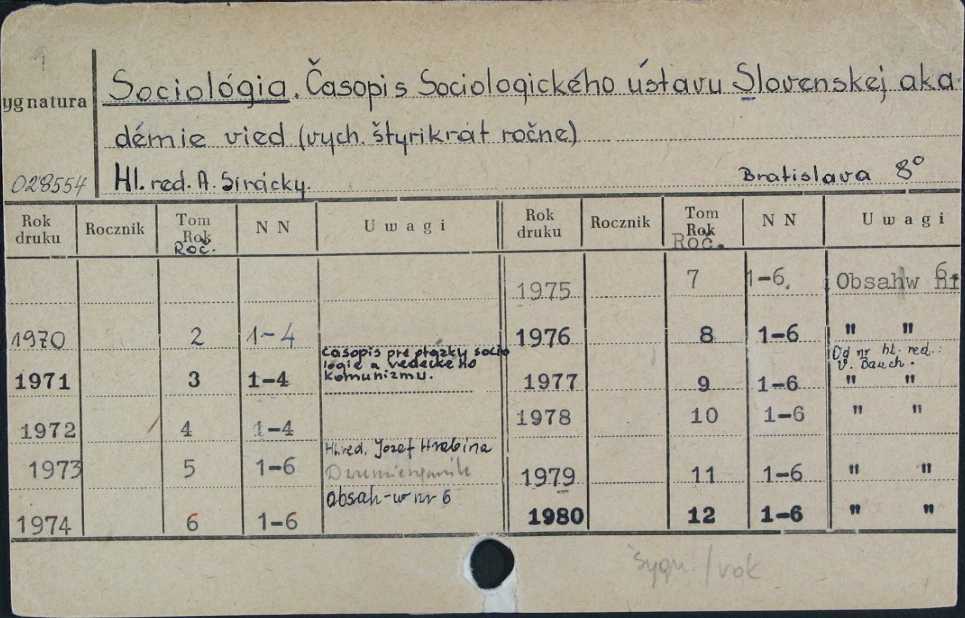 ygnatura
Sociológia. Časopis Sociologického ústavu Slovenskej aka
démie vied (vych. štyrikrát ročne)
028554 Hl. red. A. Sirácky. Bratislava 8°
Rok druku Rocznik Tom Rok Roč. N N Uwagi Rok druku Rocznik Tom Rok Roč. N N Uwagi
1975 7 1-6. Obsahw nr 6.
1970 2 1-4 1976 8 1-6 " "
1971 3 1-4 časopis pre otázky socio
lógie a vedeckého
komunizmu.
1977 9 1-6 Od nr hl. red.:
V. Bauch.
" "
1972 4 1-4 1978 10 1-6 " "
1973 5 1-6 Hl. red. Jozef Hrabina
1979 11 1-6 " "
1974 6 1-6 obsah-w nr 6 1980 12 1-6 " "
sygn./rok